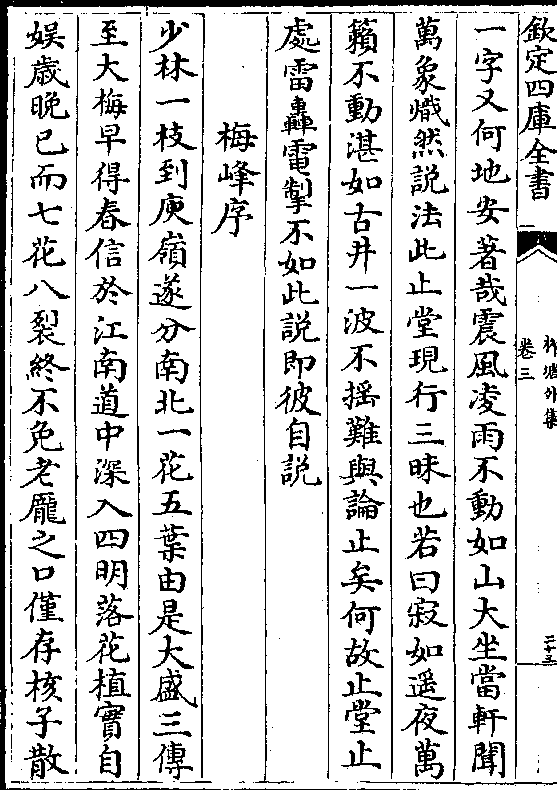 欽定四庫全書
柳塘外集
卷三
二十三
一字又何地安著哉震風凌雨不動如山大坐當軒聞
萬象熾然説法此止堂現行三昧也若曰寂如遥夜萬
籟不動湛如古井一波不揺難與論止矣何故止堂止
處雷轟電掣不如此説即彼自説
梅峰序
少林一枝到庾嶺遂分南北一花五葉由是大盛三傳
至大梅早得春信於江南道中深入四明落花植實自
娯歳晚已而七花八裂終不免老龎之口僅存核子散